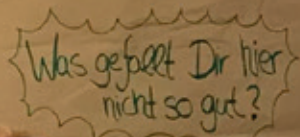 Was gefällt Dir hier
nicht so gut?